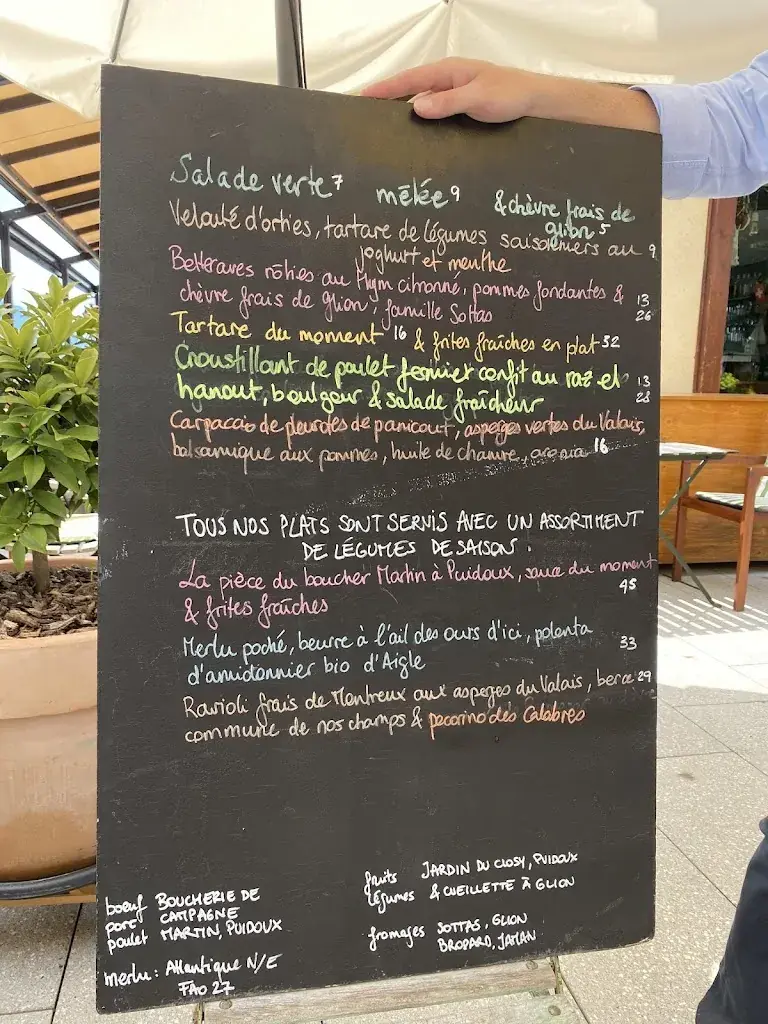 Salade verte 7 mêlée 9 & chèvre frais de
glion 5
Velouté d'orties, tartare de légumes saisonniers au 9
joghurt et menthe
Betteraves rôties au thym citronné, pommes fondantes & 13
chèvre frais de glion, famille Sottas 26
Tartare du moment 16 & frites fraîches en plat 32
Croustillant de poulet fermier confit au raz el 13
hanout, boulgour & salade fraîcheur 28
Carpaccio de pleurotes de panicaut, asperges vertes du Valais,
balsamique aux pommes, huile de chanvre, aronia 16
TOUS NOS PLATS SONT SERVIS AVEC UN ASSORTIMENT
DE LÉGUMES DE SAISON.
La pièce du boucher Martin à Puidoux, sauce du moment
& frites fraîches 45
Merlu poché, beurre à l'ail des ours d'ici, polenta 33
d'amidonnier bio d'Aigle
Ravioli frais de Montreux aux asperges du Valais, berce 29
commune de nos champs & pecorino des Calabres
boeuf BOUCHERIE DE
porc CAMPAGNE
poulet MARTIN, PUIDOUX
merlu: Atlantique N/E
FAO 27
fruits JARDIN DU CLOSY, PUIDOUX
légumes & CUEILLETTE À GLION
fromages SOTTAS, GLION
BROPARD, JAMAN